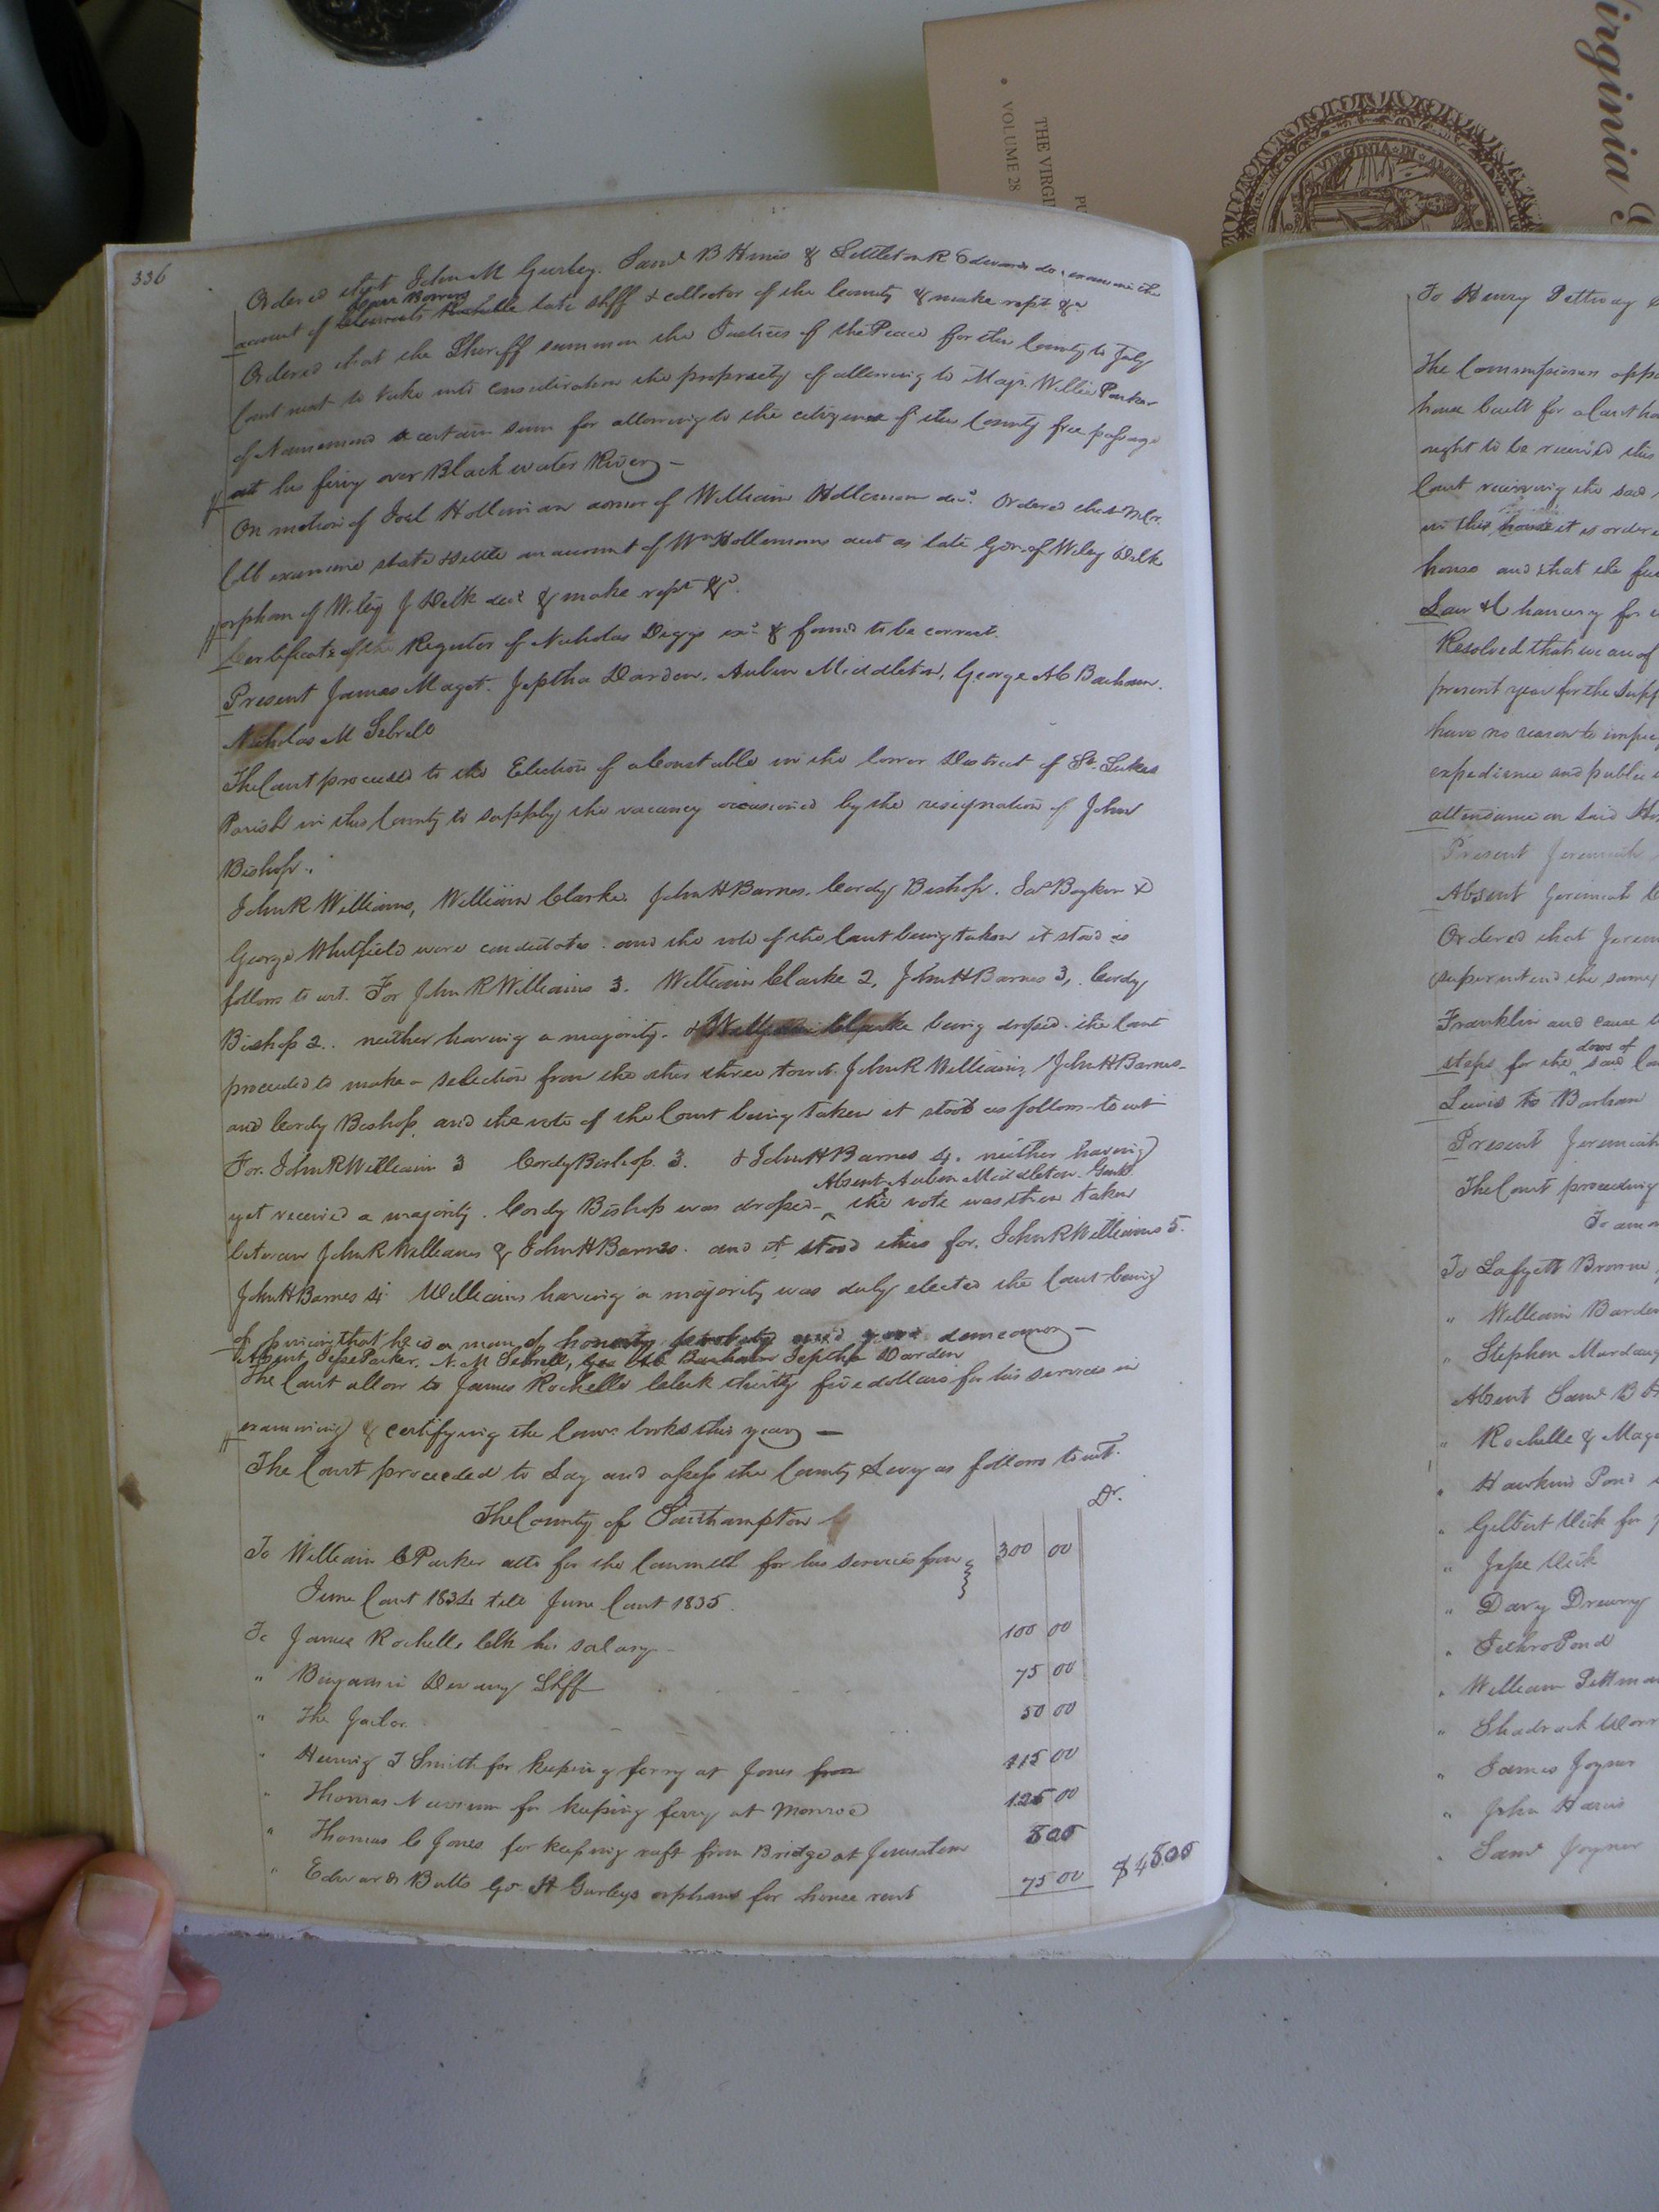 336
Ordered that John M Gurley. Saml B Hines & Littleton R Edwards do examine the
account of Clements Rochelle late Shff & collector of the County & make rept &c
Ordered that the Sheriff summon the Justices of the Peace for this County to July
Court next to take into consideration the propriety of allowing to Majr. Willie Parker
of Nansemond a certain sum for allowing to the citizens of this County free passage
at his ferry over Black water River —
On motion of Joel Holleman admor of William Holleman decd. Ordered that Mr.
Cobb examine state & settle an account of Wm Hollemans acct as late Gdn. of Wiley Delk
orphan of Wiley J Delk decd & make rept &c.
Certificate of the Register of Nicholas Diggs exd. & found to be correct.
Present James Maget. Jeptha Darden, Aubin Middleton, George A C Barham.
Nicholas M Sebrell
The Court proceeded to the Election of a Constable in the lower District of St. Lukes
Parish in this County to supply the vacancy occasioned by the resignation of John
Bishop.
John R Williams, William Clarke. John H Barnes. Cordy Bishop. Jas Boykin &
George Whitfield were candidates. and the vote of the Court being taken it stood as
follows to wit. For John R Williams 3. William Clarke 2, John H Barnes 3, Cordy
Bishop 2. neither having a majority. & William Clarke being droped. the Court
proceeded to make a selection from the other three to wit. John R Williams, John H Barnes
and Cordy Bishop, and the vote of the Court being taken it stood as follows to wit
For. John R William 3 Cordy Bishop 3. & John H Barnes 4. neither having
Absent Aubin Middleton Gent
yet received a majority. Cordy Bishop was droped the vote was then taken
between John R Williams & John H Barnes. and it stood thus for. John R Williams 5.
John H Barnes 4. Williams having a majority was duly elected the Court being
of opinion that he is a man of honesty probity and good demeanor —
Absent, Jesse Parker, N. M Sebrell, Geo A C Barham Jeptha Darden
The Court allow to James Rochelle Clerk thirty five dollars for his services in
examining & certifying the Comrs. books this year —
The Court proceeded to Lay and assess the County Levy as follows to wit.
The County of Southampton Dr.
To William C Parker atto for the Commth for his services from 300 00
June Court 1834 till June Court 1835.
To James Rochelle Clk his salary 100 00
" Benjamin Devany Shff 75 00
" The Jailor 50 00
" Henning T Smith for keeping ferry at Jones 115 00
" Thomas Newsum for keeping ferry at Monroe 125 00
" Thomas C Jones for keeping raft from Bridge at Jerusalem 5 00
" Edward Butts Gdn. H Gurleys orphans for house rent 75 00
To Henry Pettway
The Commissioners
house built for a Court
ought to be received this
Court receiving the said
in this house it is order
house and that the
Law & Chancery for
Resolved that we are of
present year for the
have no reason to
expedience and public
attendance on said
Present Jeremiah
Absent Jeremiah
Ordered that
superintend the same
Franklin and cause
doors of
steps for the said
Lewis to Barham
Present Jeremiah
The Court proceeding
To am
To Lafyett Browne
" William Barden
" Stephen Murdaug
Absent Saml B
" Rochelle & Mag
" Hawkins Pond
" Gilbert Vick for
" Jesse Vick
" Davy Drewry
" Jethro Pond
" William Pittman
" Shadrack Worr
" James Joyner
" John Haris
" Saml Joyner
irginia
VIRGINIA IN AMERICA
THE VIRGI
VOLUME 28
PU